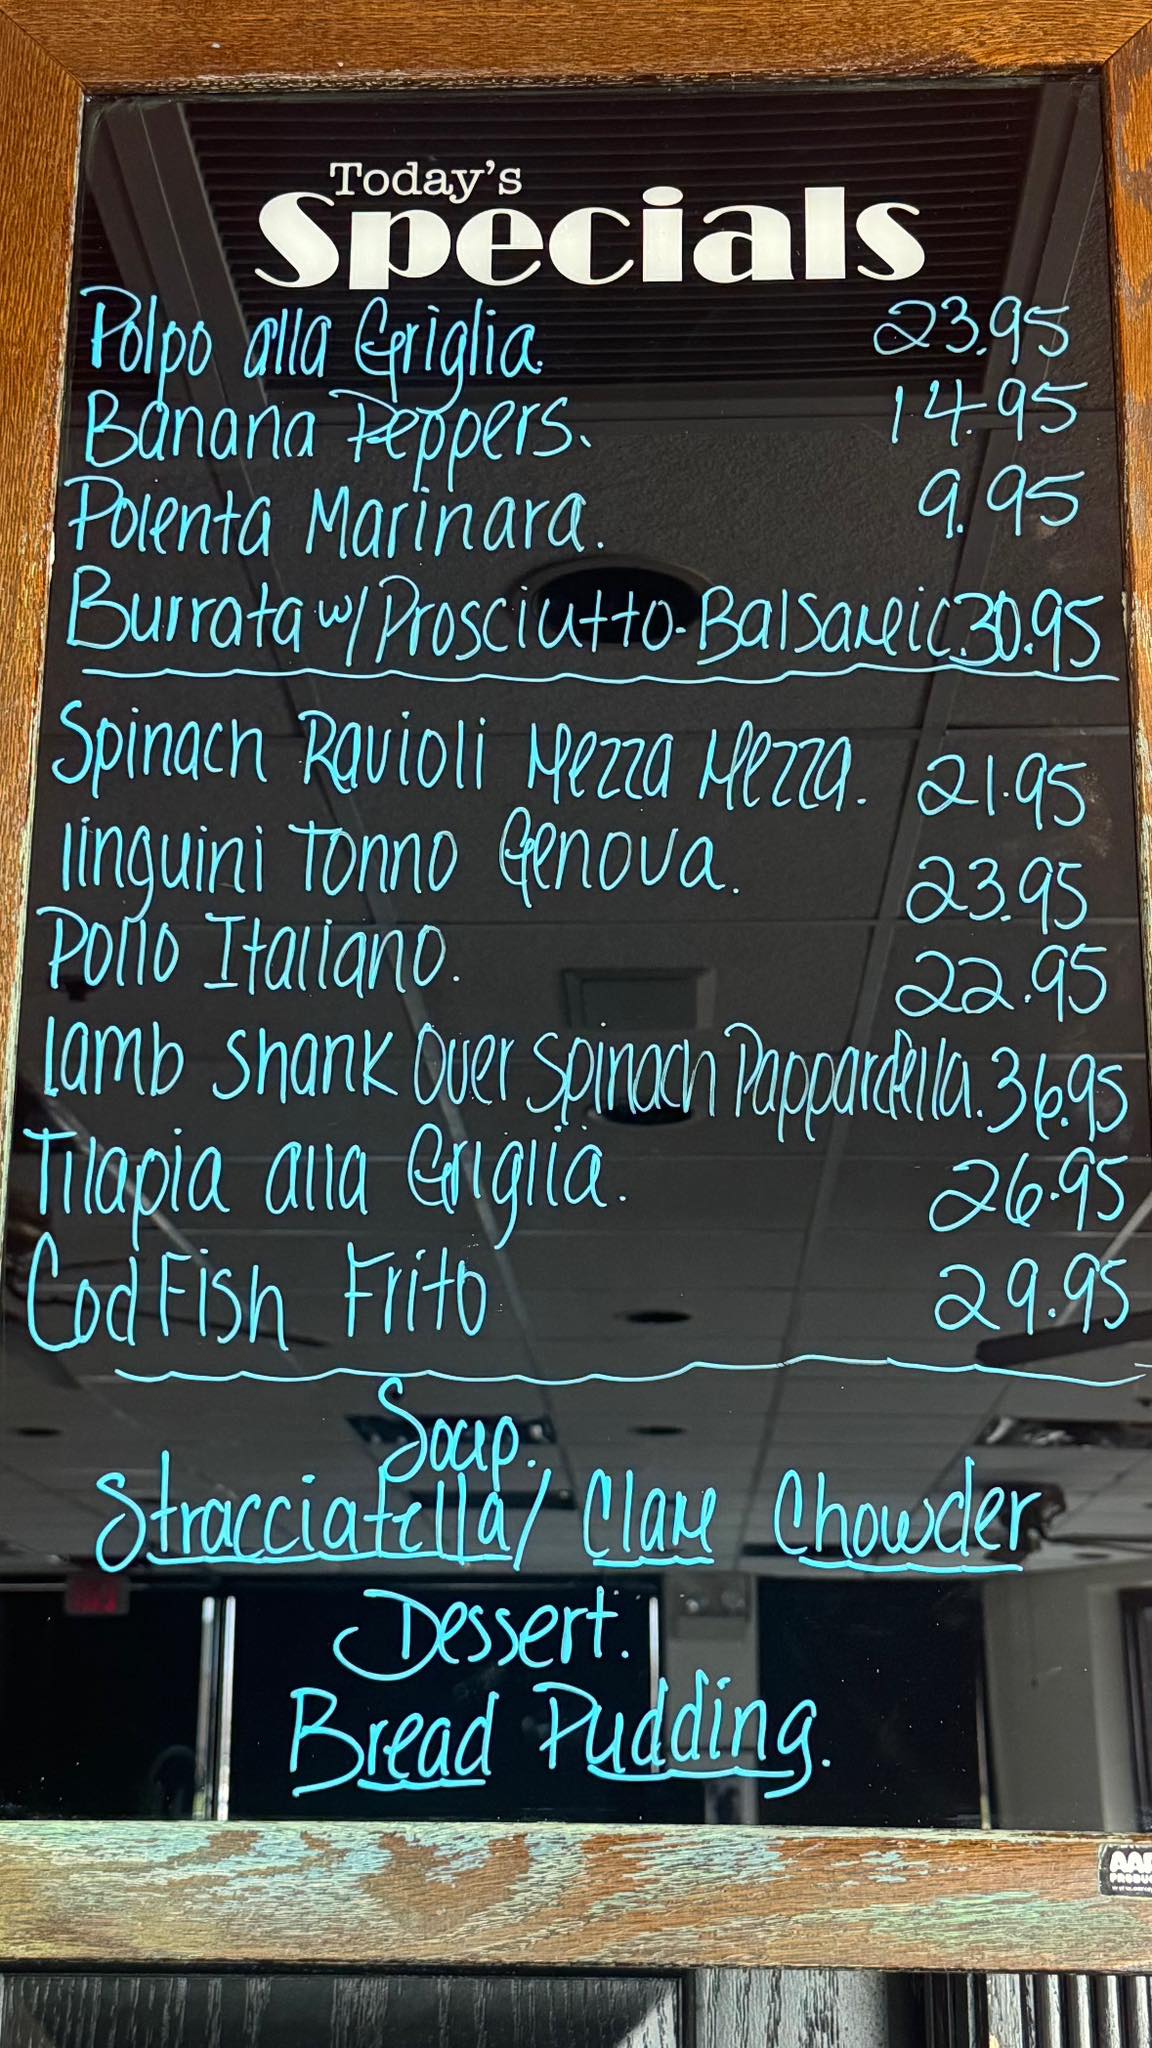 Today's
Specials
Polpo alla Griglia. 23.95
Banana Peppers. 14.95
Polenta Marinara. 9.95
Burrata w/ Prosciutto-Balsamic. 30.95
Spinach Ravioli Mezza Mezza. 21.95
linguini Tonno Genova. 23.95
Pollo Italiano. 22.95
lamb Shank Over Spinach Pappardella. 36.95
Tilapia alla Griglia. 26.95
Cod Fish Frito 29.95
Soup.
Stracciatella/ Clam Chowder
Dessert.
Bread Pudding.